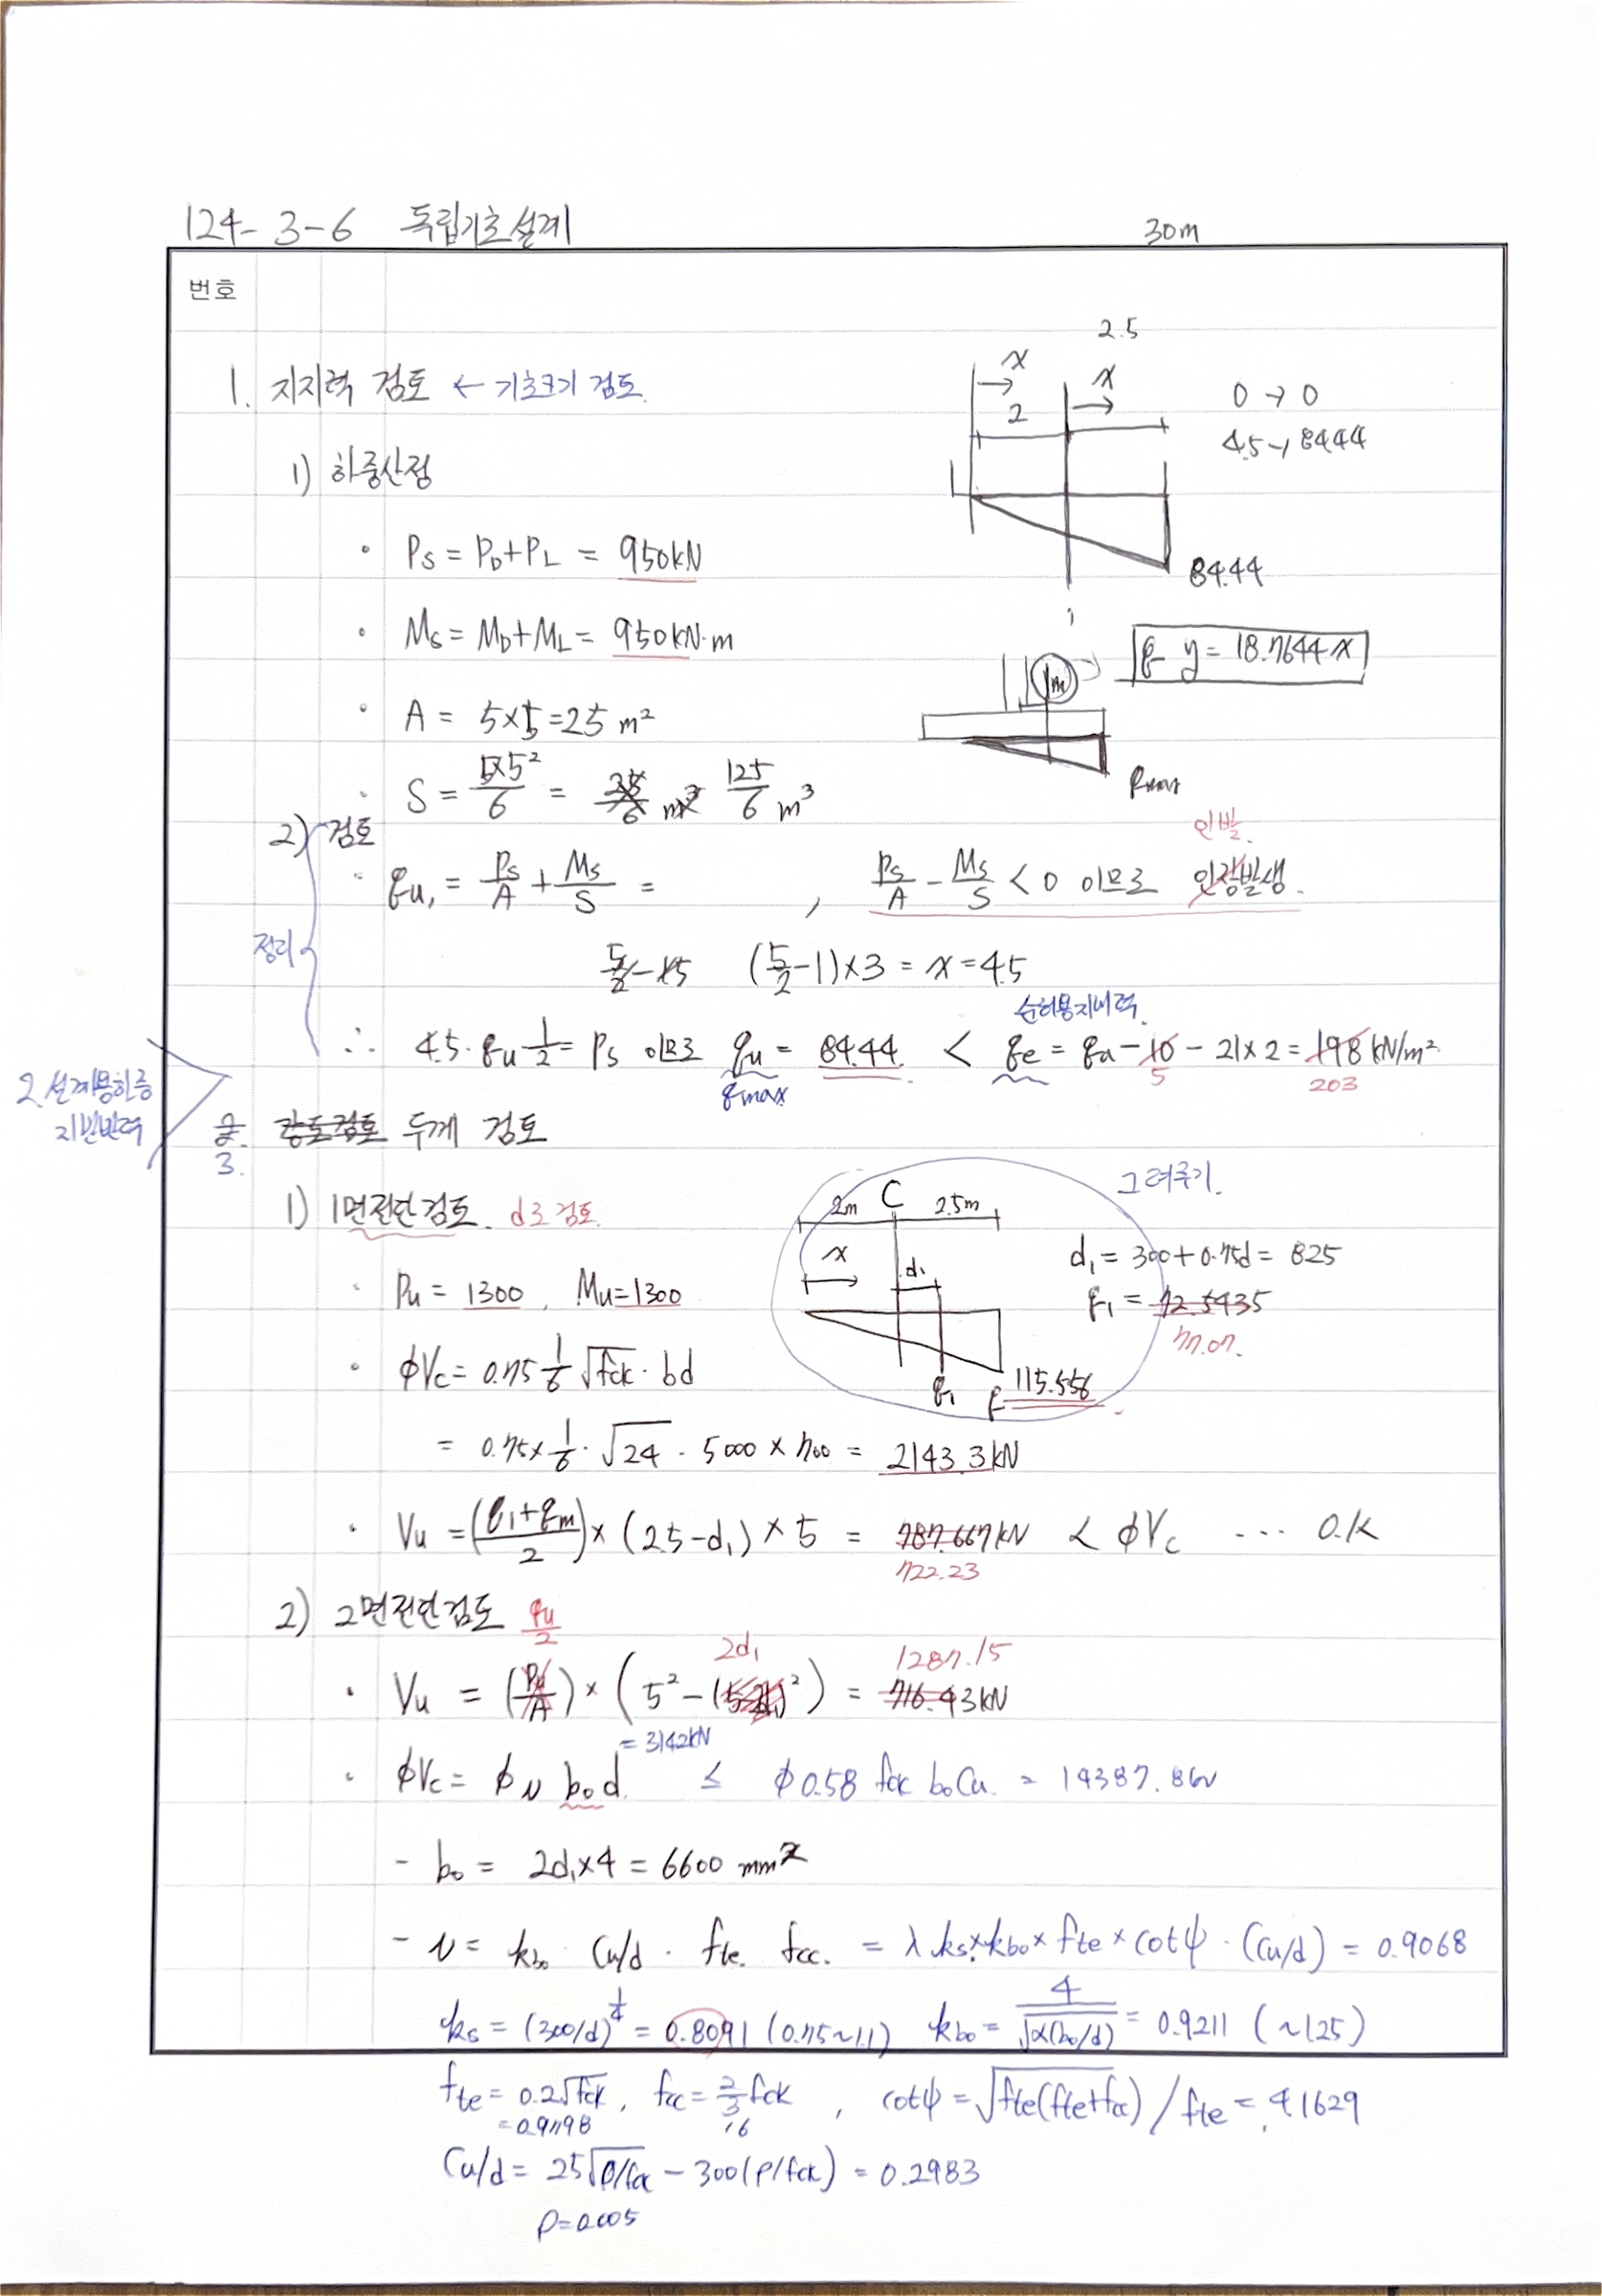 124-3-6 독립기초설계 30m
번호
1. 지지력 검토 ← 기초크기 검토.
1) 하중산정
2.5
x
x
2
0 → 0
4.5 → 84.44
84.44
· Ps = PD+PL = 950kN
· Ms = MD+ML = 950kN·m
y = 18.7644x
m
· A = 5×5=25 m²
qmax
· S = 5×5²/6 = 125/6 m³
2) 검토
· qu, = Ps/A + Ms/S = , Ps/A - Ms/S < 0 이므로 인발 발생.
정리
(5/2-1)×3 = x = 4.5
순허용지내력
∴ 4.5·qu 1/2 = Ps 이므로 qu = 84.44 < qe = qa - 10 - 21×2 = 198 kN/m²
qmax
5
203
2. 설계용하중
지반반력
3. 강도검토 두께 검토
1) 1면전단검토. d로 검토.
그려주기.
2m C 2.5m
x
d₁
q₁
115.556
d₁ = 300+0.75d = 825
q₁ = 72.5435
77.07.
· Pu = 1300, Mu=1300
· φVc = 0.75 1/6 √fck · bd
= 0.75×1/6·√24 · 5000×700 = 2143.3kN
· Vu = (q₁+qm/2)×(2.5-d₁)×5 = 787.667kN < φVc ... O.K
722.23
2) 2면전단검토 qu/2
2d₁
1287.15
· Vu = (Pu/A)×(5²-( )²) = 716.43kN
= 3142kN
· φVc = φν b₀d. ≤ φ0.58 fck b₀Cu. = 14387.8kN
- b₀ = 2d₁×4 = 6600 mm
- ν = kb₀ Cu/d · fte. fcc. = λ·ks×kb₀×fte×cotψ·(Cu/d) = 0.9068
ks = (300/d)^¼ = 0.8091 (0.75~1.1) kb₀ = 4/√α(b₀/d) = 0.9211 (~1.25)
fte = 0.2√fck, fcc = 2/3 fck, cotψ = √fte(fte+fcc) / fte = 4.1629
= 0.9798
16
Cu/d = 25√ρ/fck - 300(ρ/fck) = 0.2983
ρ=0.005